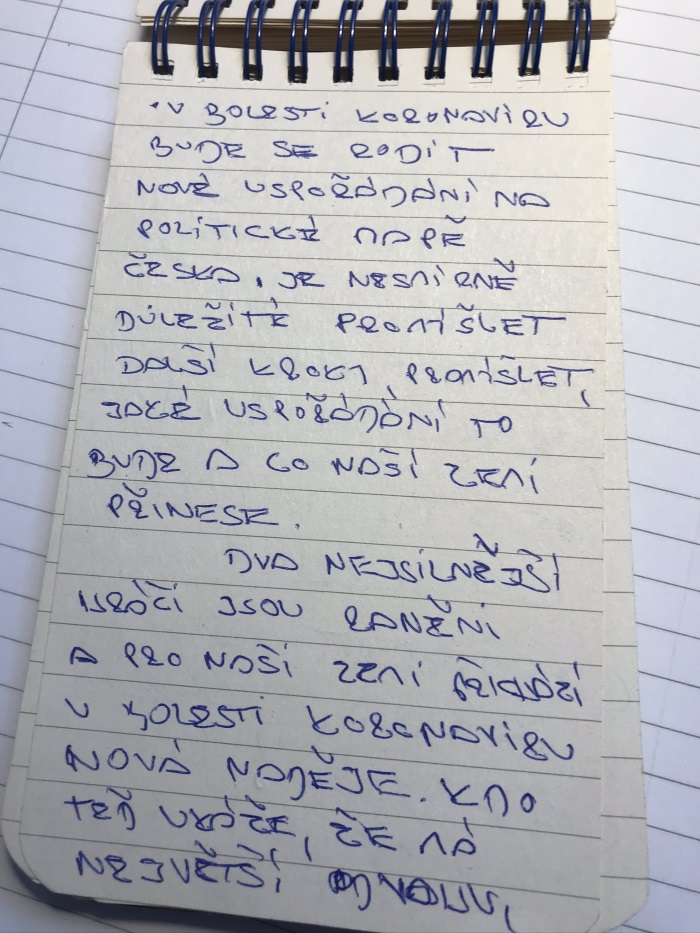 •V BOLESTI KORONAVIRU
BUDE SE RODIT
NOVÉ USPOŘÁDÁNÍ NA
POLITICKÉ MAPĚ
ČESKA. JE NESMÍRNĚ
DŮLEŽITÉ PROMÝŠLET
DALŠÍ KROKY, PROMÝŠLET,
JAKÉ USPOŘÁDÁNÍ TO
BUDE A CO NAŠÍ ZEMI
PŘINESE.
DVA NEJSILNĚJŠÍ
HRÁČI JSOU RANĚNI
A PRO NAŠI ZEMI PŘICHÁZÍ
V BOLESTI KORONAVIRU
NOVÁ NADĚJE. KDO
TEĎ UKÁŽE, ŽE MÁ
NEJVĚTŠÍ